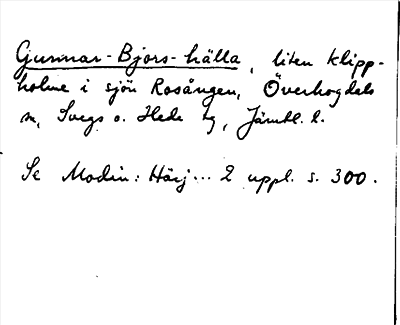 Gunnar-Björs-hälla, liten klipp-
holme i sjön Rosången, Överhogdals
sn, Svegs o. Hede tg, Jämtl. l.
Se Modin: Härj... 2 uppl. s. 300.